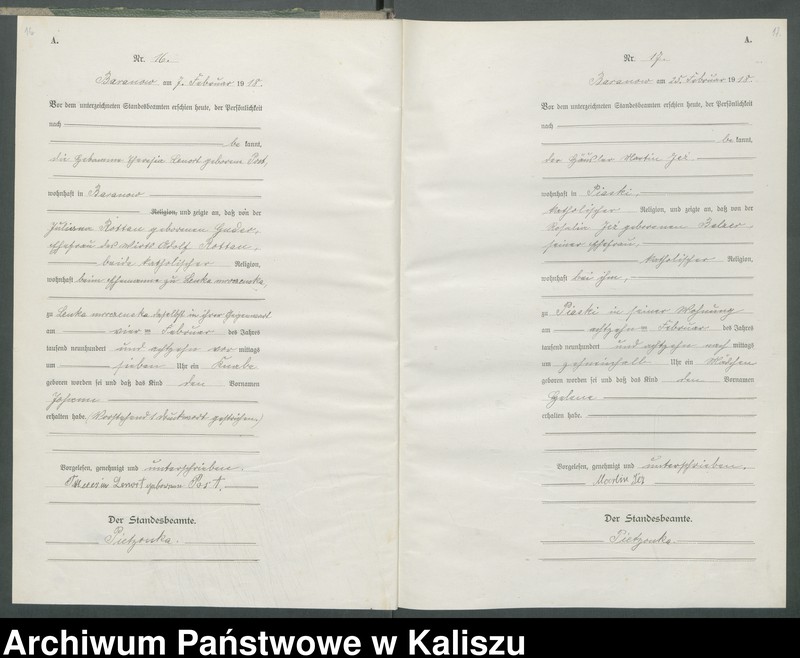 A.
Nr. 16.
Baranow am 7. Februar 1918.
Vor dem unterzeichneten Standesbeamten erschien heute, der Persönlichkeit
nach
be kannt,
die Hebamme Theresia Lenort geborene Post,
wohnhaft in Baranow
Religion, und zeigte an, daß von der
Juliana Kottau geborenen Guder,
Ehefrau des Wirts Adolf Kottau,
beide katholischer Religion,
wohnhaft beim Ehemanne zu Lenka mroczenska,
zu Lenka mroczenska daselbst in ihrer Gegenwart
am vier = Februar des Jahres
tausend neunhundert und achtzehn vor mittags
um sieben Uhr ein Knabe
geboren worden sei und daß das Kind den Vornamen
erhalten habe. (Vorstehend 1 Druckwort gestrichen.)
Vorgelesen, genehmigt und unterschrieben.
Lenort geborene Post.
Der Standesbeamte.
Pietzonka.
17.
A.
Nr. 17.
Baranow am 25. Februar 1918.
Vor dem unterzeichneten Standesbeamten erschien heute, der Persönlichkeit
nach
be kannt,
der Häusler Martin Jeż
wohnhaft in Piaski,
katholischer Religion, und zeigte an, daß von der
Rosalia Jeż geborenen
seiner Ehefrau,
katholischer Religion,
wohnhaft bei ihm,
zu Piaski in seiner Wohnung
am achtzehn = Februar des Jahres
tausend neunhundert und achtzehn nach mittags
um zehneinhalb Uhr ein Mädchen
geboren worden sei und daß das Kind den Vornamen
Helene
erhalten habe.
Vorgelesen, genehmigt und unterschrieben.
Martin Jeż
Der Standesbeamte.
Pietzonka.
Archiwum Państwowe w Kaliszu